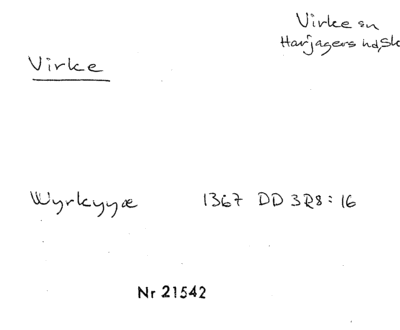 Virke sn
Harjagers hd, Sk
Virke
Wyrkyyæ 1367 DD 3R8:16
Nr 21542